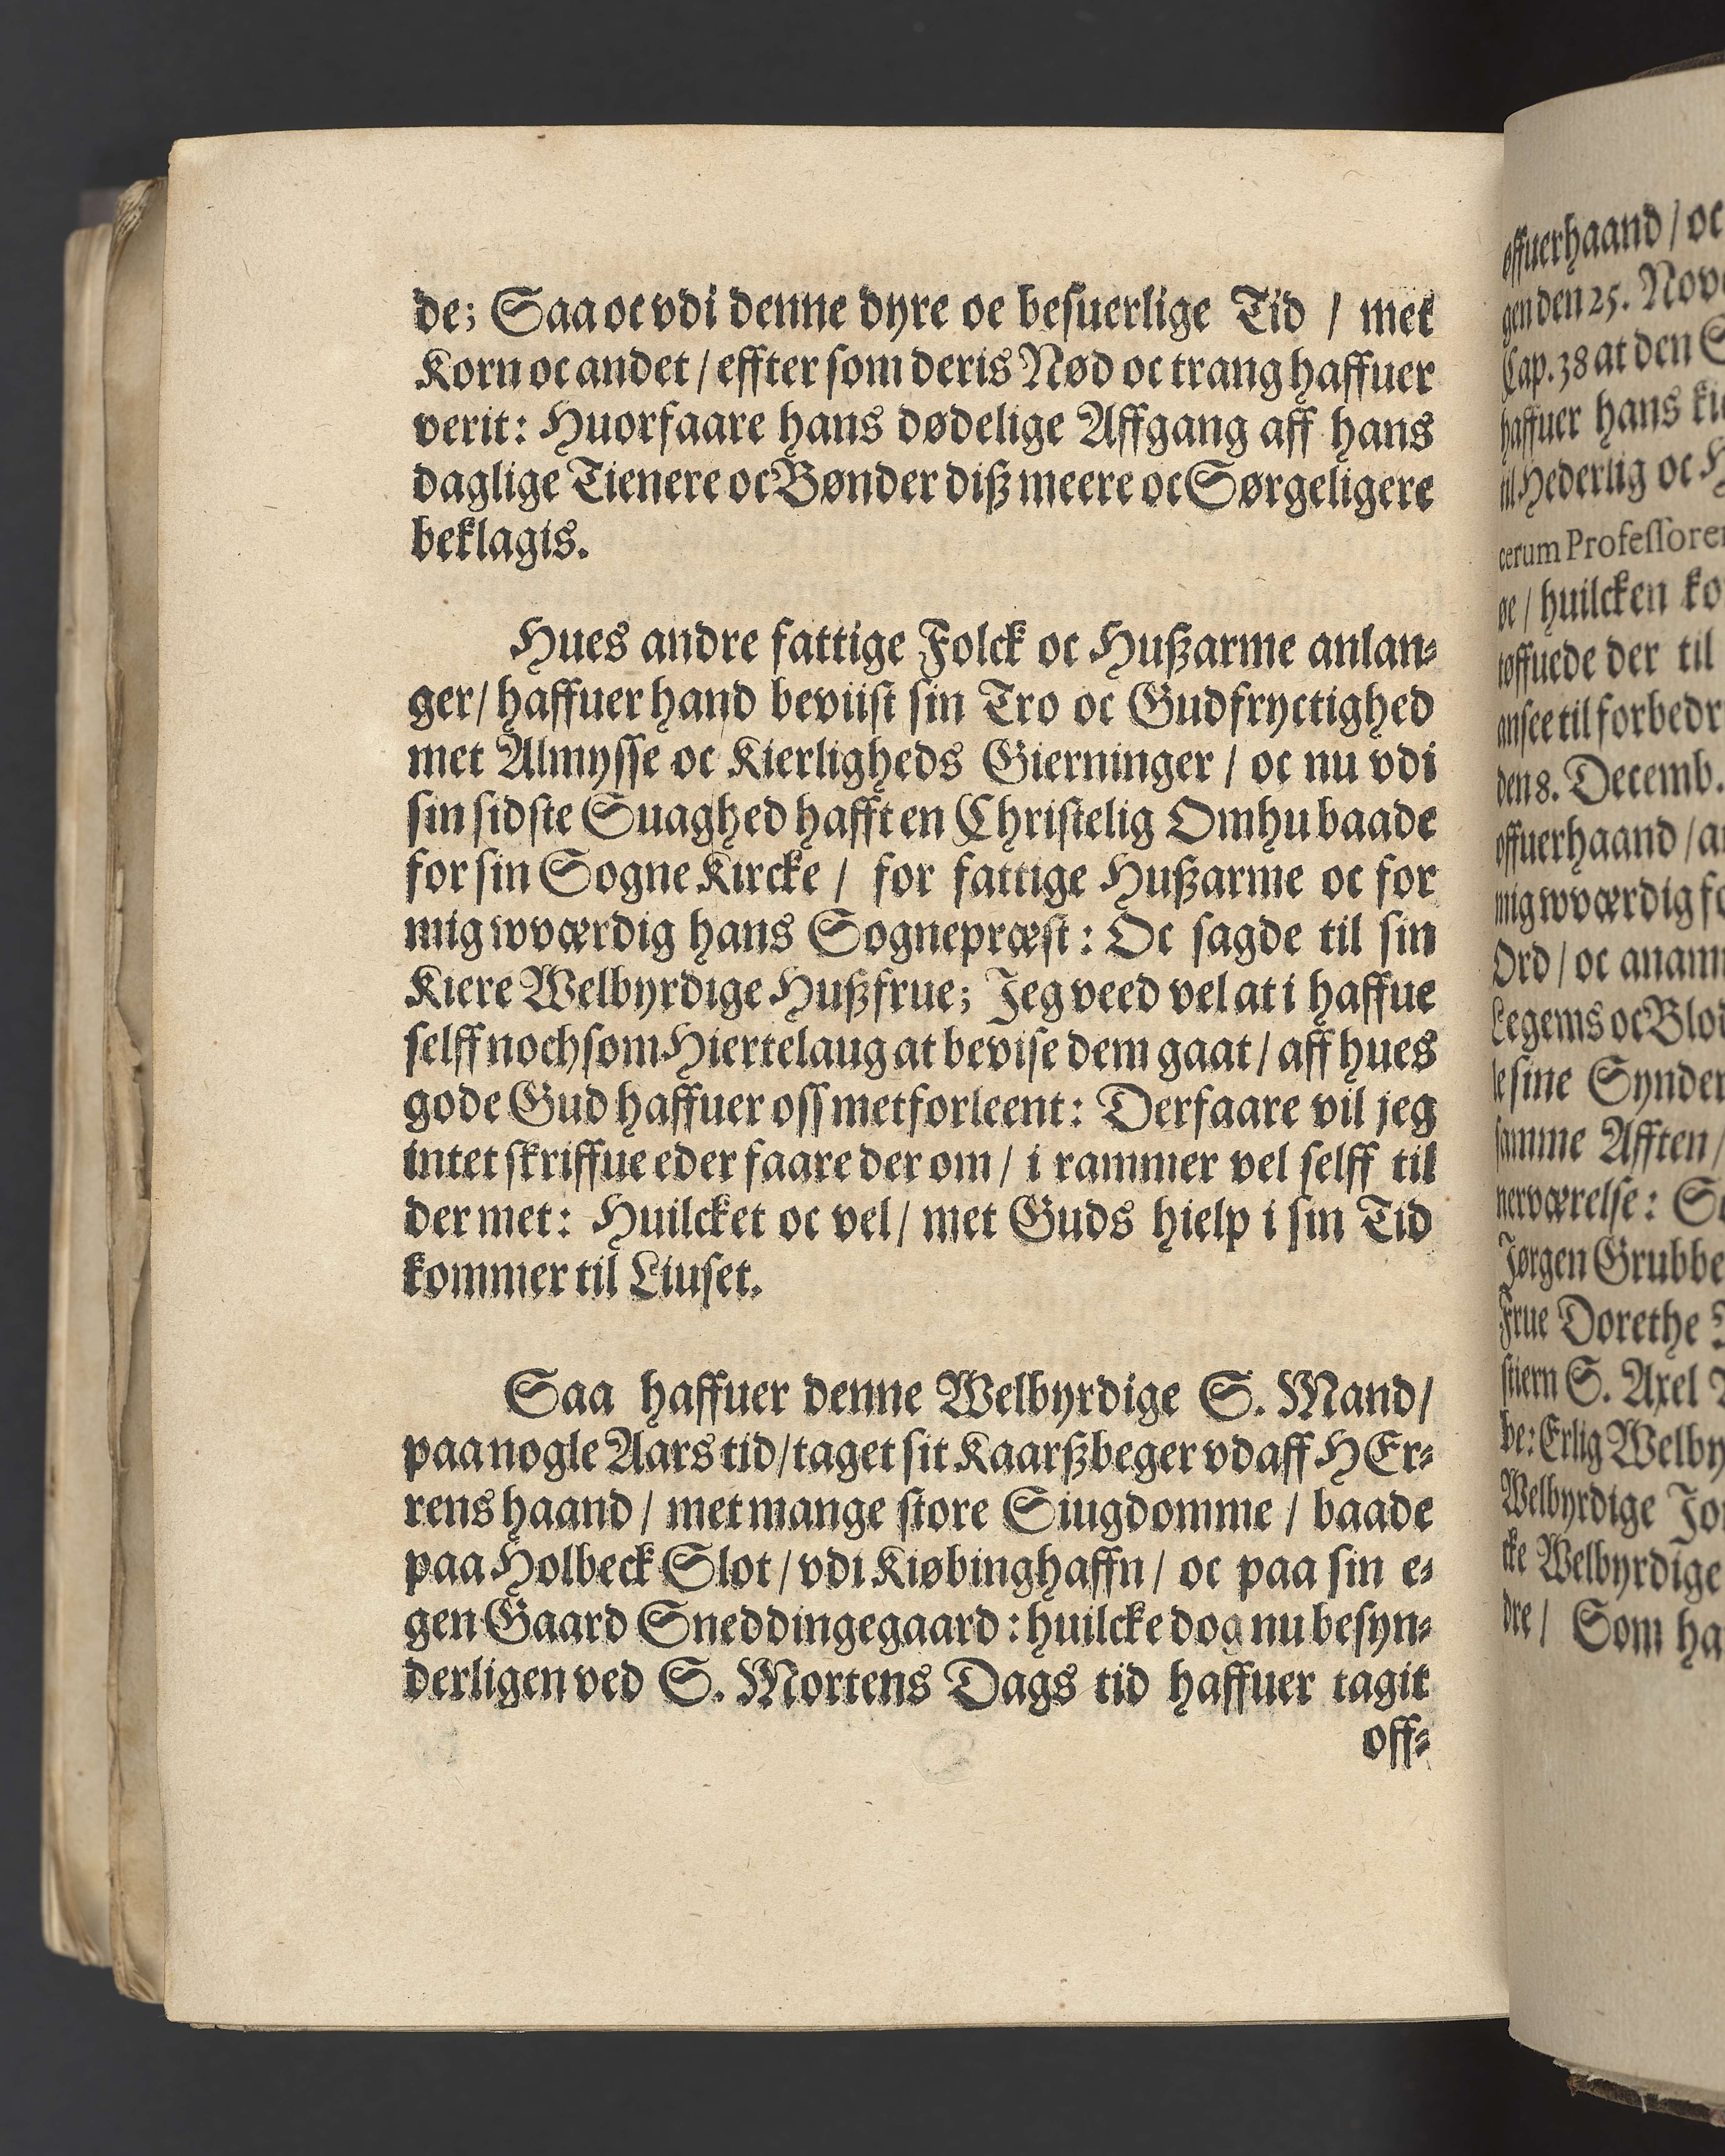 de; Saa oc vdi denne dyre oc besuerlige Tid / met
Korn oc andet / effter som deris Nød oc trang haffuer
verit: Huorfaare hans dødelige Affgang aff hans
daglige Tienere oc Bønder diß meere oc Sørgeligere
beklagis.
Hues andre fattige Folck oc Hußarme anlan-
ger / haffuer hand beviist sin Tro oc Gudfryctighed
met Almysse oc Kierligheds Gierninger / oc nu vdi
sin sidste Suaghed hafft en Christelig Omhu baade
for sin Sogne Kircke / for fattige Hußarme oc for
mig wværdig hans Sognepræst: Oc sagde til sin
Kiere Welbyrdige Hußfrue; Jeg veed vel at i haffue
selff noch som Hiertelaug at bevise dem gaat / aff hues
gode Gud haffuer oss met forleent: Derfaare vil jeg
intet skriffue eder faare der om / i rammer vel selff til
der met: Huilcket oc vel / met Guds hielp i sin Tid
kommer til Liuset.
Saa haffuer denne Welbyrdige S. Mand /
paa nogle Aars tid / taget sit Kaarßbeger vdaff HEr-
rens haand / met mange store Siugdomme / baade
paa Holbeck Slot / vdi Kiøbinghaffn / oc paa sin e-
gen Gaard Sneddingegaard: huilcke dog nu besyn-
derligen ved S. Mortens Dags tid haffuer tagit
off-
offuerhaand / oc
gen den 25. Nov
Cap. 38 at den
haffuer hans
til Hederlig oc
cerum
øe / huilcken
tøffuede der til
ansee til
den 8. Decemb.
offuerhaand /
mig wværdig
Ord / oc
Legems oc
le sine
samme Afften /
nerværelse:
Jørgen Grubbe
Frue Dorethe
stiern S. Axel
be: Erlig
Welbyrdige
cke Welbyrdige
dre / Som